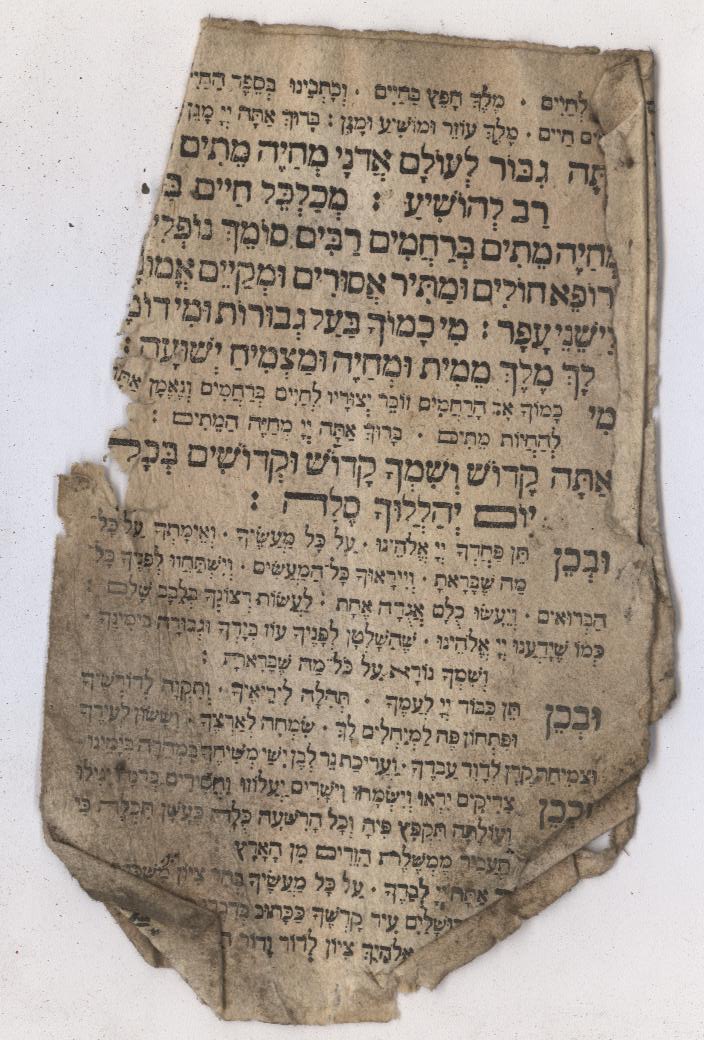 לְחַיִּים · מֶלֶךְ חָפֵץ בַּחַיִּים · וְכָתְבֵינוּ בְּסֵפֶר הַחַיִּי
ים חַיִּים · מֶלֶךְ עוֹזֵר וּמוֹשִׁיעַ וּמָגֵן : בָּרוּךְ אַתָּה יְיָ מָגֵן
תָּה גִבּוֹר לְעוֹלָם אֲדֹנָי מְחַיֵּה מֵתִים
רַב לְהוֹשִׁיעַ : מְכַלְכֵּל חַיִּים בְּ
מְחַיֵּה מֵתִים בְּרַחֲמִים רַבִּים סוֹמֵךְ נוֹפְלִי
רוֹפֵא חוֹלִים וּמַתִּיר אֲסוּרִים וּמְקַיֵּים אֱמוּנָ
לִישֵׁנֵי עָפָר : מִי כָמוֹךָ בַּעַל גְּבוּרוֹת וּמִי דוֹמֶ
לָךְ מֶלֶךְ מֵמִית וּמְחַיֶּה וּמַצְמִיחַ יְשׁוּעָה :
מִי כָמוֹךָ אַב הָרַחֲמִים זוֹכֵר יְצוּרָיו לְחַיִּים בְּרַחֲמִים וְנֶאֱמָן אַתָּה
לְהַחֲיוֹת מֵתִים · בָּרוּךְ אַתָּה יְיָ מְחַיֵּה הַמֵּתִים :
אַתָּה קָדוֹשׁ וְשִׁמְךָ קָדוֹשׁ וּקְדוֹשִׁים בְּכָל
יוֹם יְהַלְלוּךָ סֶלָה :
וּבְכֵן תֵּן פַּחְדְּךָ יְיָ אֱלֹהֵינוּ · עַל כָּל מַעֲשֶׂיךָ · וְאֵימָתְךָ עַל כָּל
מַה שֶּׁבָּרָאתָ · וְיִירָאוּךָ כָּל הַמַּעֲשִׂים · וְיִשְׁתַּחֲווּ לְפָנֶיךָ כָּל
הַבְּרוּאִים · וְיֵעָשׂוּ כֻלָּם אֲגֻדָּה אֶחָת · לַעֲשׂוֹת רְצוֹנְךָ בְּלֵבָב שָׁלֵם :
כְּמוֹ שֶׁיָּדַעְנוּ יְיָ אֱלֹהֵינוּ · שֶׁהַשָּׁלְטָן לְפָנֶיךָ עוֹז בְּיָדְךָ וּגְבוּרָה בִּימִינֶךָ
וְשִׁמְךָ נוֹרָא עַל כָּל מַה שֶּׁבָּרָאתָ :
וּבְכֵן תֵּן כָּבוֹד יְיָ לְעַמֶּךָ · תְּהִלָּה לִירֵיאֶיךָ · וְתִקְוָה לְדוֹרְשֶׁיךָ
וּפִתְחוֹן פֶּה לַמְיַחֲלִים לָךְ · שִׂמְחָה לְאַרְצֶךָ · וְשָׂשׂוֹן לְעִירֶךָ
וּצְמִיחַת קֶרֶן לְדָוִד עַבְדֶּךָ · וַעֲרִיכַת נֵר לְבֶן יִשַׁי מְשִׁיחֶךָ בִּמְהֵרָה בְיָמֵינוּ
וּבְכֵן צַדִּיקִים יִרְאוּ וְיִשְׂמָחוּ וִישָׁרִים יַעֲלוֹזוּ וַחֲסִידִים בְּרִנָּה יָגִילוּ
וְעוֹלָתָה תִּקְפָּץ פִּיהָ וְכָל הָרִשְׁעָה כֻּלָּהּ כְּעָשָׁן תִּכְלֶה כִּי
תַעֲבִיר מֶמְשֶׁלֶת הַזֵּדִים מִן הָאָרֶץ
אַתָּה יְיָ לְבַדֶּךָ · עַל כָּל מַעֲשֶׂיךָ בְּהַר צִיּוֹן
רוּשָׁלַיִם עִיר קָדְשֶׁךָ כַּכָּתוּב בְּדִבְרֵ
אֱלֹהַיִךְ צִיּוֹן לְדוֹר וָדוֹר הַ